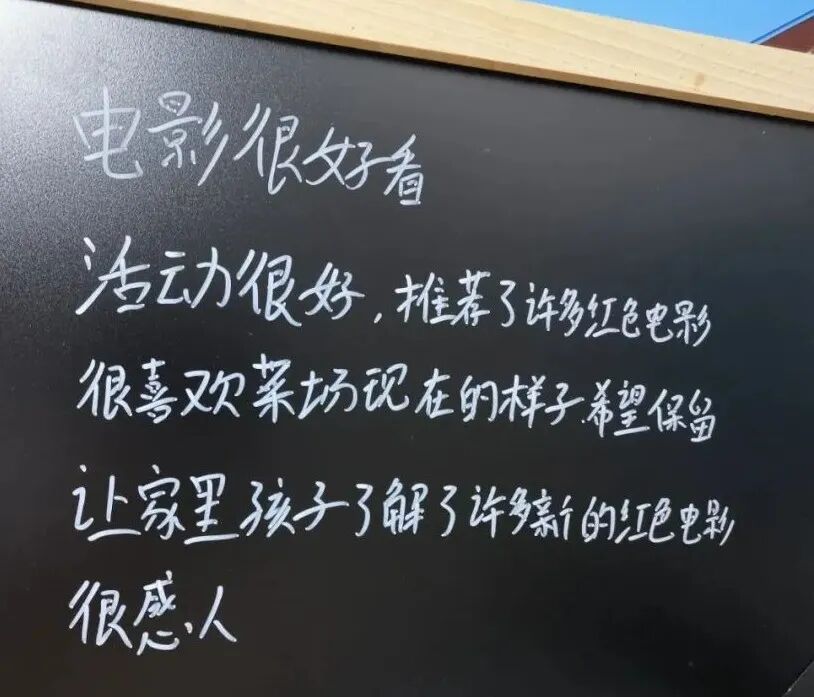 电影很好看
活动很好,推荐了许多红色电影
很喜欢菜场现在的样子.希望保留
让家里孩子了解了许多新的红色电影
很感人